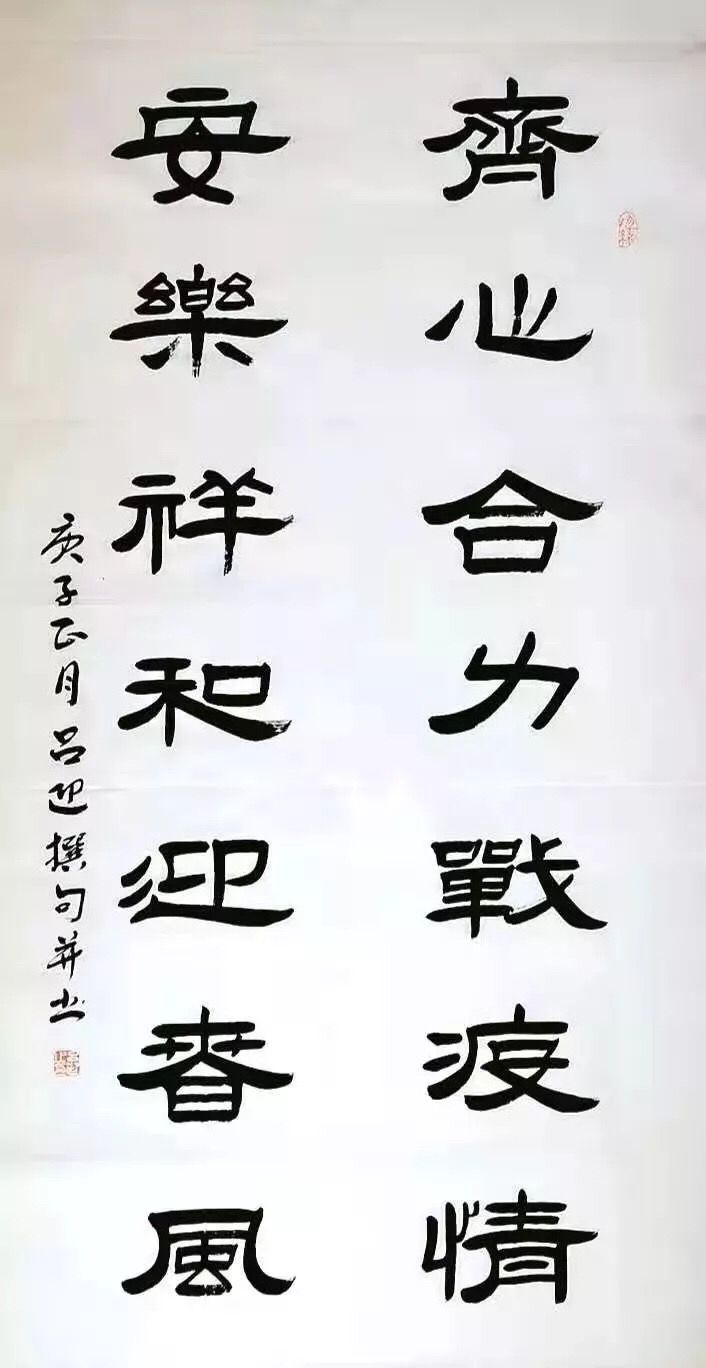 齊心合力戰疫情
安樂祥和迎春風
庚子正月吕迎撰句并书